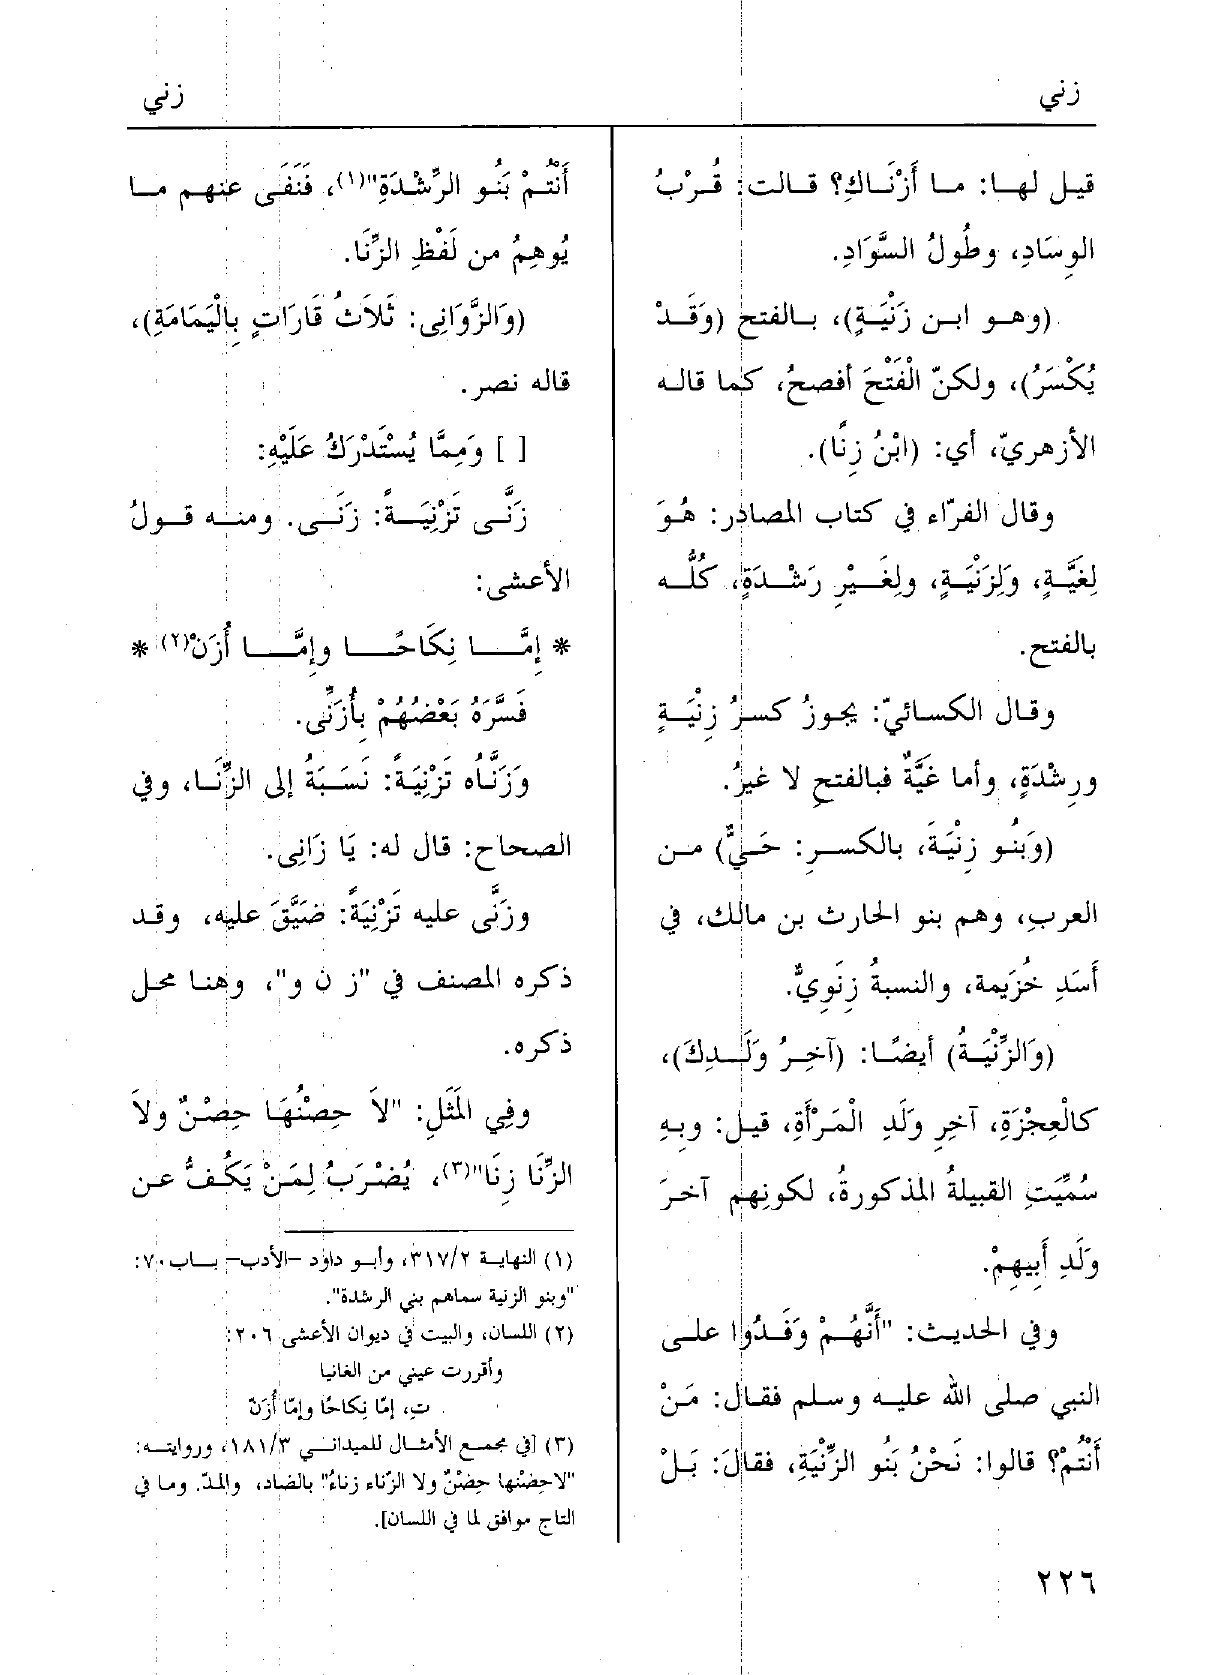 زني
زني
قيل لها: ما أَزْنَاكِ؟ قالت: قُرْبُ
الوِسَادِ، وطُولُ السَّوَادِ.
(وهو ابن زَنْيَةٍ)، بالفتح (وَقَدْ
يُكْسَرُ)، ولكنّ الْفَتْحَ أفصحُ، كما قاله
الأزهريّ، أي: (ابْنُ زِنًا).
وقال الفرّاء في كتاب المصادر: هُوَ
لِغَيَّةٍ، وَلِزَنْيَةٍ، ولِغَيْرِ رَشْدَةٍ، كُلُّه
بالفتح.
وقال الكسائيّ: يجوزُ كسرُ زِنْيَةٍ
ورِشْدَةٍ، وأما غَيَّةٌ فبالفتحِ لا غيرُ.
(وَبَنُو زِنْيَةَ، بالكسرِ: حَيٌّ) من
العرب، وهم بنو الحارث بن مالك، في
أَسَدِ خُزَيمة، والنسبةُ زِنَوِيٌّ.
(وَالزِّنْيَةُ) أيضًا: (آخِرُ وَلَدِكَ)،
كالْعِجْزَةِ، آخرِ وَلَدِ الْمَرْأَةِ، قيل: وبِهِ
سُمِّيَتِ القبيلةُ المذكورةُ، لكونِهم آخرَ
وَلَدِ أَبِيهِمْ.
وفي الحديث: "أَنَّهُمْ وَفَدُوا على
النبي صلى الله عليه وسلم فقال: مَنْ
أَنْتُمْ؟ قالوا: نَحْنُ بَنُو الزِّنْيَةِ، فقالَ: بَلْ
أَنْتُمْ بَنُو الرِّشْدَةِ"(١)، فَنَفَى عنهم ما
يُوهِمُ من لَفْظِ الزِّنَا.
(وَالزَّوَانِى: ثَلاَثُ قَارَاتٍ بِالْيَمَامَةِ)،
قاله نصر.
[ ] وَمِمَّا يُسْتَدْرَكُ عَلَيْهِ:
زَنَّى تَزْنِيَةً: زَنَى. ومنه قولُ
الأعشى:
* إِمَّا نِكَاحًا وإِمَّا أُزَنْ(٢) *
فَسَّرَهُ بَعْضُهُمْ بِأُزَنِّى.
وَزَنَّاه تَزْنِيَةً: نَسَبَهُ إلى الزِّنَا، وفي
الصحاح: قال له: يَا زَانِى.
وزَنَّى عليه تَزْنِيَةً: ضَيَّقَ عليه، وقد
ذكره المصنف في "ز ن و"، وهنا محل
ذكره.
وفِي الْمَثَلِ: "لاَ حِصْنُهَا حِصْنٌ ولاَ
الزِّنَا زِنَا"(٣)، يُضْرَبُ لِمَنْ يَكُفُّ عن
(١) النهاية ٣١٧/٢، وأبو داؤد –الأدب– باب٧٠:
"وبنو الزنية سماهم بني الرشدة".
(٢) اللسان، والبيت في ديوان الأعشى ٢٠٦:
وأقررت عيني من الغانيا
ت، إمّا نِكاحًا وإمّا أُزَنّ
(٣) [في مجمع الأمثال للميداني ١٨١/٣، وروايته:
"لاحِضْنها حِضْنٌ ولا الزّناء زناءُ" بالضاد، والمدّ. وما في
التاج موافق لما في اللسان].
٢٢٦